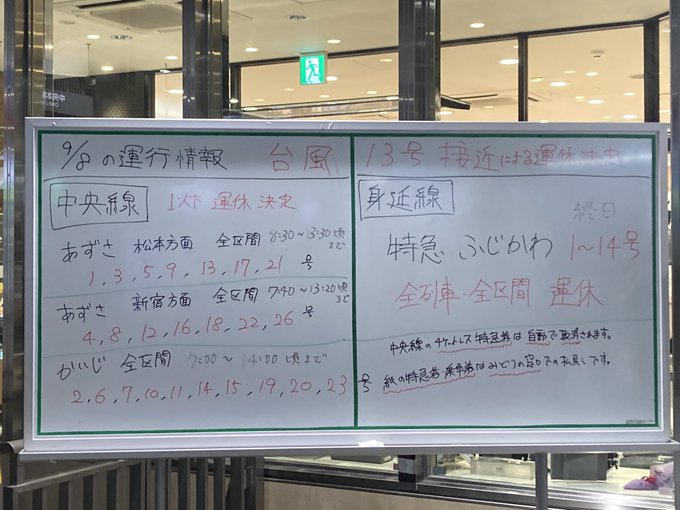 9/8の運行情報 台風13号接近による運休決定
中央線 以下 運休決定
あずさ 松本方面 全区間 8:30～13:30頃まで
1,3,5,9,13,17,21号
あずさ 新宿方面 全区間 7:40～13:20頃まで
4,8,12,16,18,22,26号
かいじ 全区間 7:00～14:00頃まで
2,6,7,10,11,14,15,19,20,23号
身延線
終日
特急 ふじかわ 1～14号
全列車・全区間 運休
中央線のチケットレス特急券は自動で取消されます。
紙の特急券・乗車券はみどりの窓口での払戻しです。